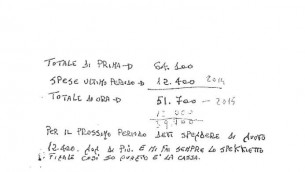 TOTALE DI PRIMA → 64.100
SPESE ULTIMO PERIODO → 12.400 2014
TOTALE DI ORA → 51.700 — 2015
PER IL PROSSIMO PERIODO DEVI SPENDERE DI NUOVO
12.400, NON DI PIÙ. E MI FAI SEMPRE LO SPECCHIETTO
FINALE COSÌ SO QUANTO È LA CASSA.